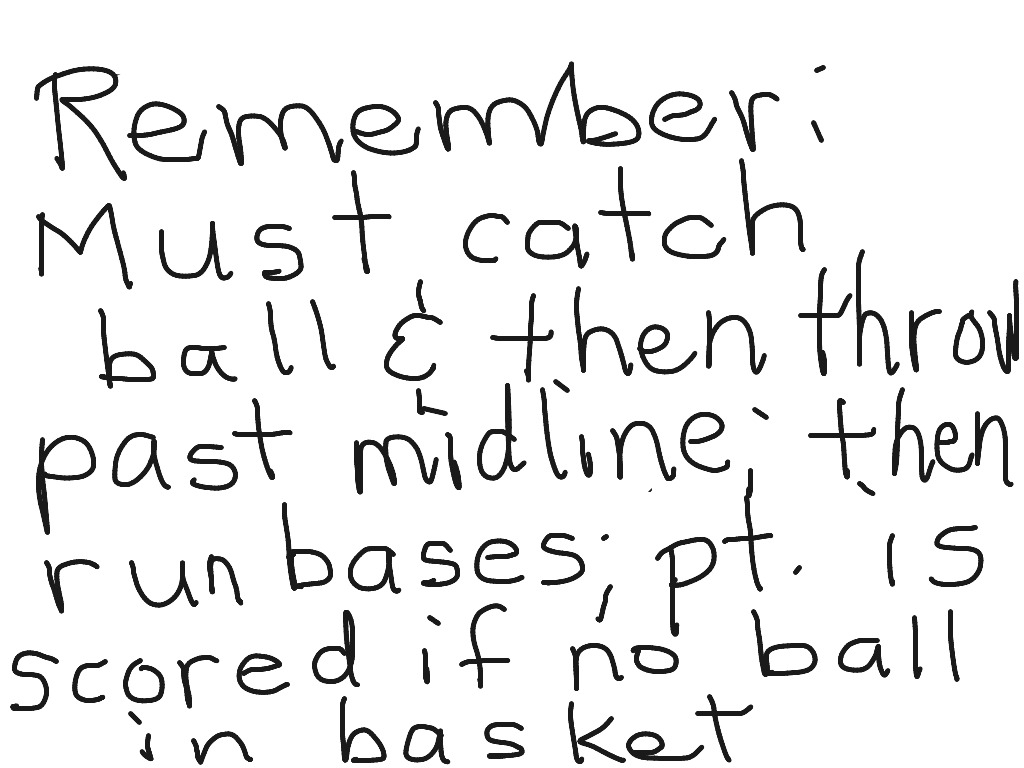 Remember:
Must catch
ball & then throw
past midline; then
run bases; pt. is
scored if no ball
in basket